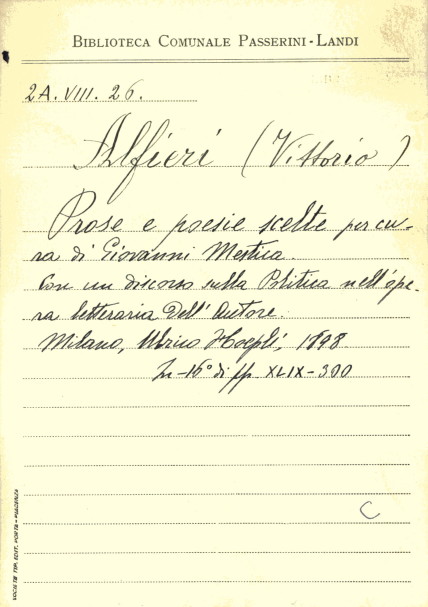 BIBLIOTECA COMUNALE PASSERINI-LANDI
2A. VIII. 26.
Alfieri (Vittorio)
Prose e poesie scelte per cu-
ra di Giovanni Mestica.
Con un discorso sulla Politica nell'ope-
ra letteraria dell'Autore.
Milano, Ulrico Hoepli, 1898
In-16° di pp. XLIX-300
C